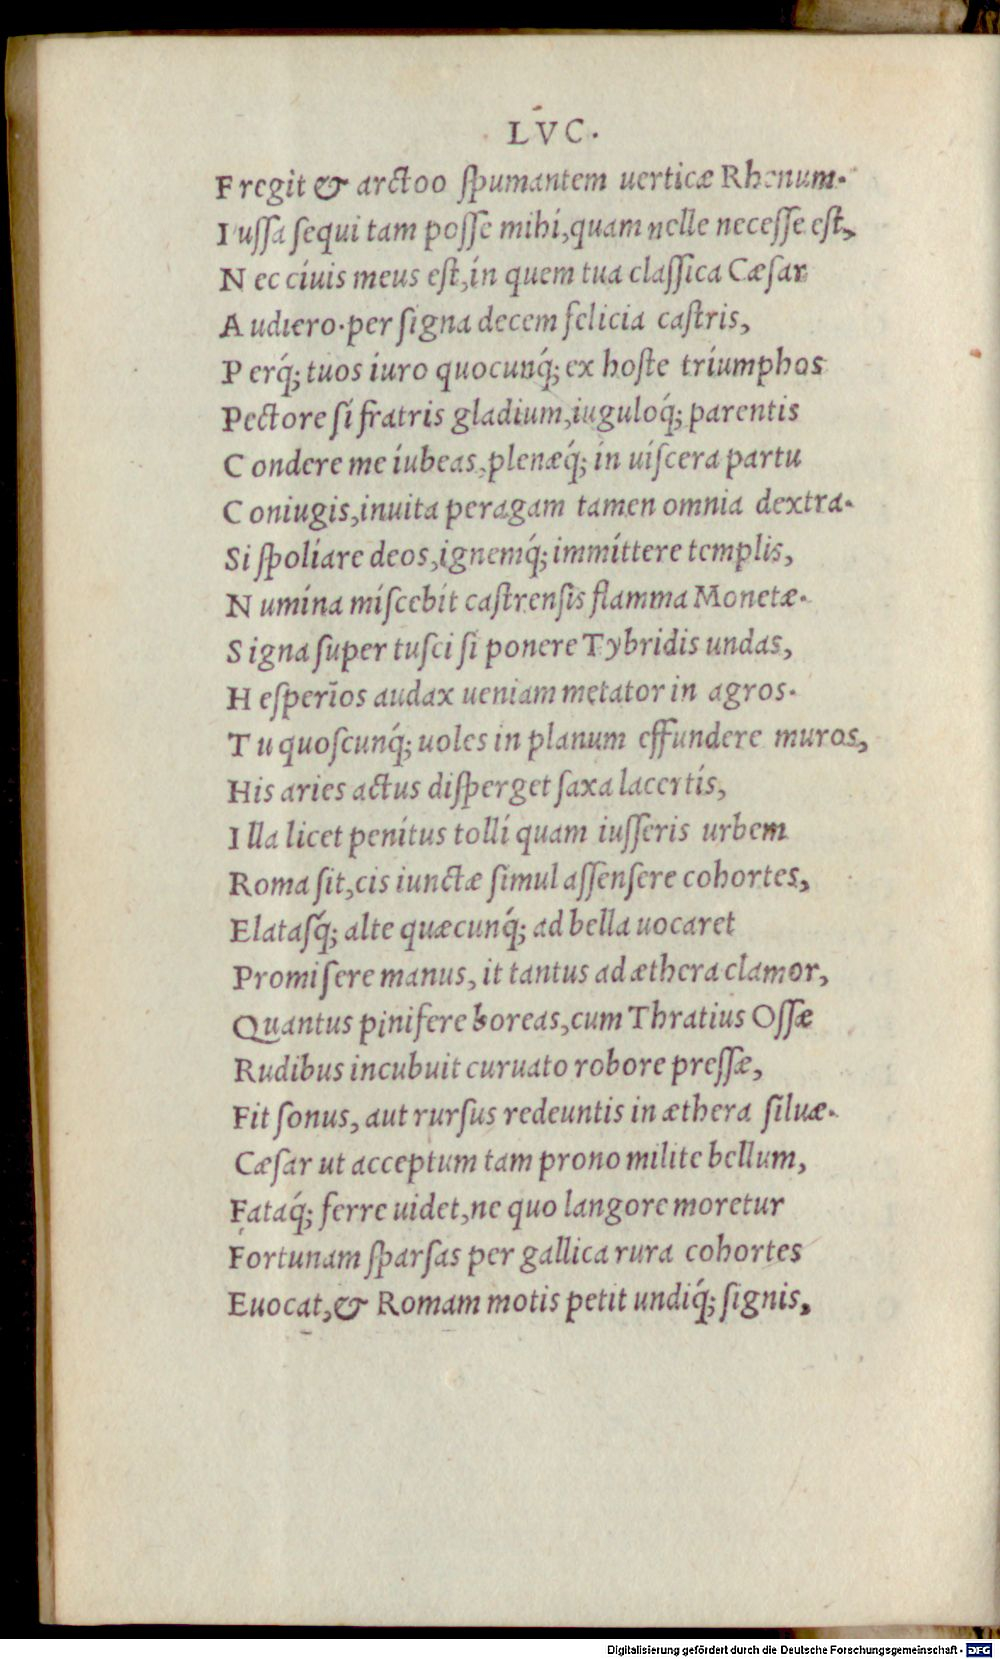 LVC.
Fregit & arctoo ſpumantem uerticæ Rhenum.
Iuſſa ſequi tam poſſe mihi,quam nelle neceſſe eſt,
Nec ciuis meus eſt,in quem tua claſſica Cæſar
Audiero.per ſigna decem felicia caſtris,
Perq́; tuos iuro quocunq́; ex hoſte triumphos
Pectore ſi fratris gladium,iuguloq́; parentis
Condere me iubeas,plenæq́; in uiſcera partu
Coniugis,inuita peragam tamen omnia dextra.
Si ſpoliare deos,ignemq́; immittere templis,
Numina miſcebit caſtrenſis flamma Monetæ.
Signa ſuper tuſci ſi ponere Tybridis undas,
Heſperīos audax ueniam metator in agros.
Tu quoſcunq́; uoles in planum effundere muros,
His aries actus diſperget ſaxa lacertis,
Illa licet penitus tolli quam iuſſeris urbem
Roma ſit,cis iunctæ ſimul aſſenſere cohortes,
Elataſq́; alte quæcunq́; ad bella uocaret
Promiſere manus, it tantus ad æthera clamor,
Quantus pinifere boreas,cum Thratius Oſſæ
Rudibus incubuit curuato robore preſſæ,
Fit ſonus, aut rurſus redeuntis in æthera ſiluæ.
Cæſar ut acceptum tam prono milite bellum,
Fataq́; ferre uidet,ne quo langore moretur
Fortunam ſparſas per gallica rura cohortes
Euocat,& Romam motis petit undiq́; ſignis,
Digitalisierung gefördert durch die Deutsche Forschungsgemeinschaft - DFG